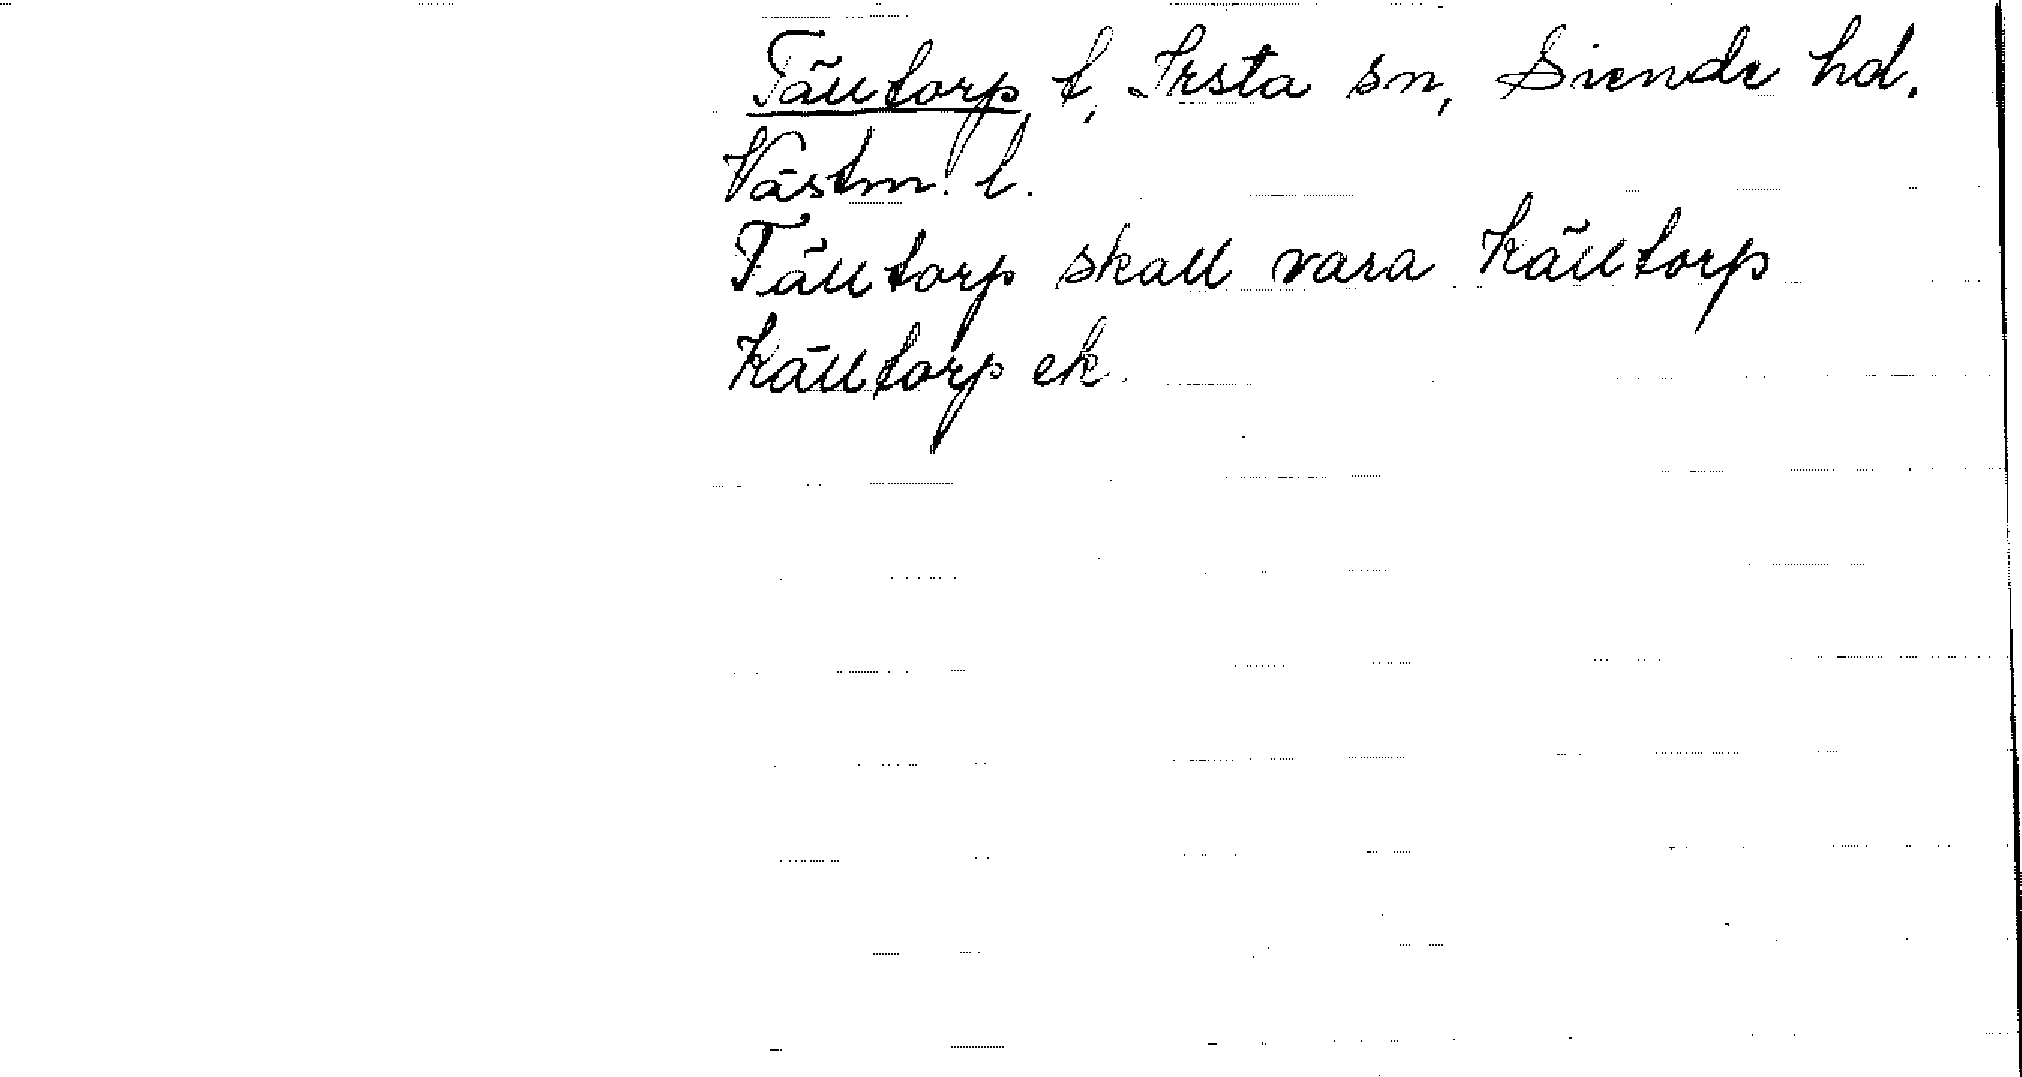 Tälltorp t, Irsta sn, Siende hd.
Västm. l.
Tälltorp skall vara Källtorp
Källtorp ek.